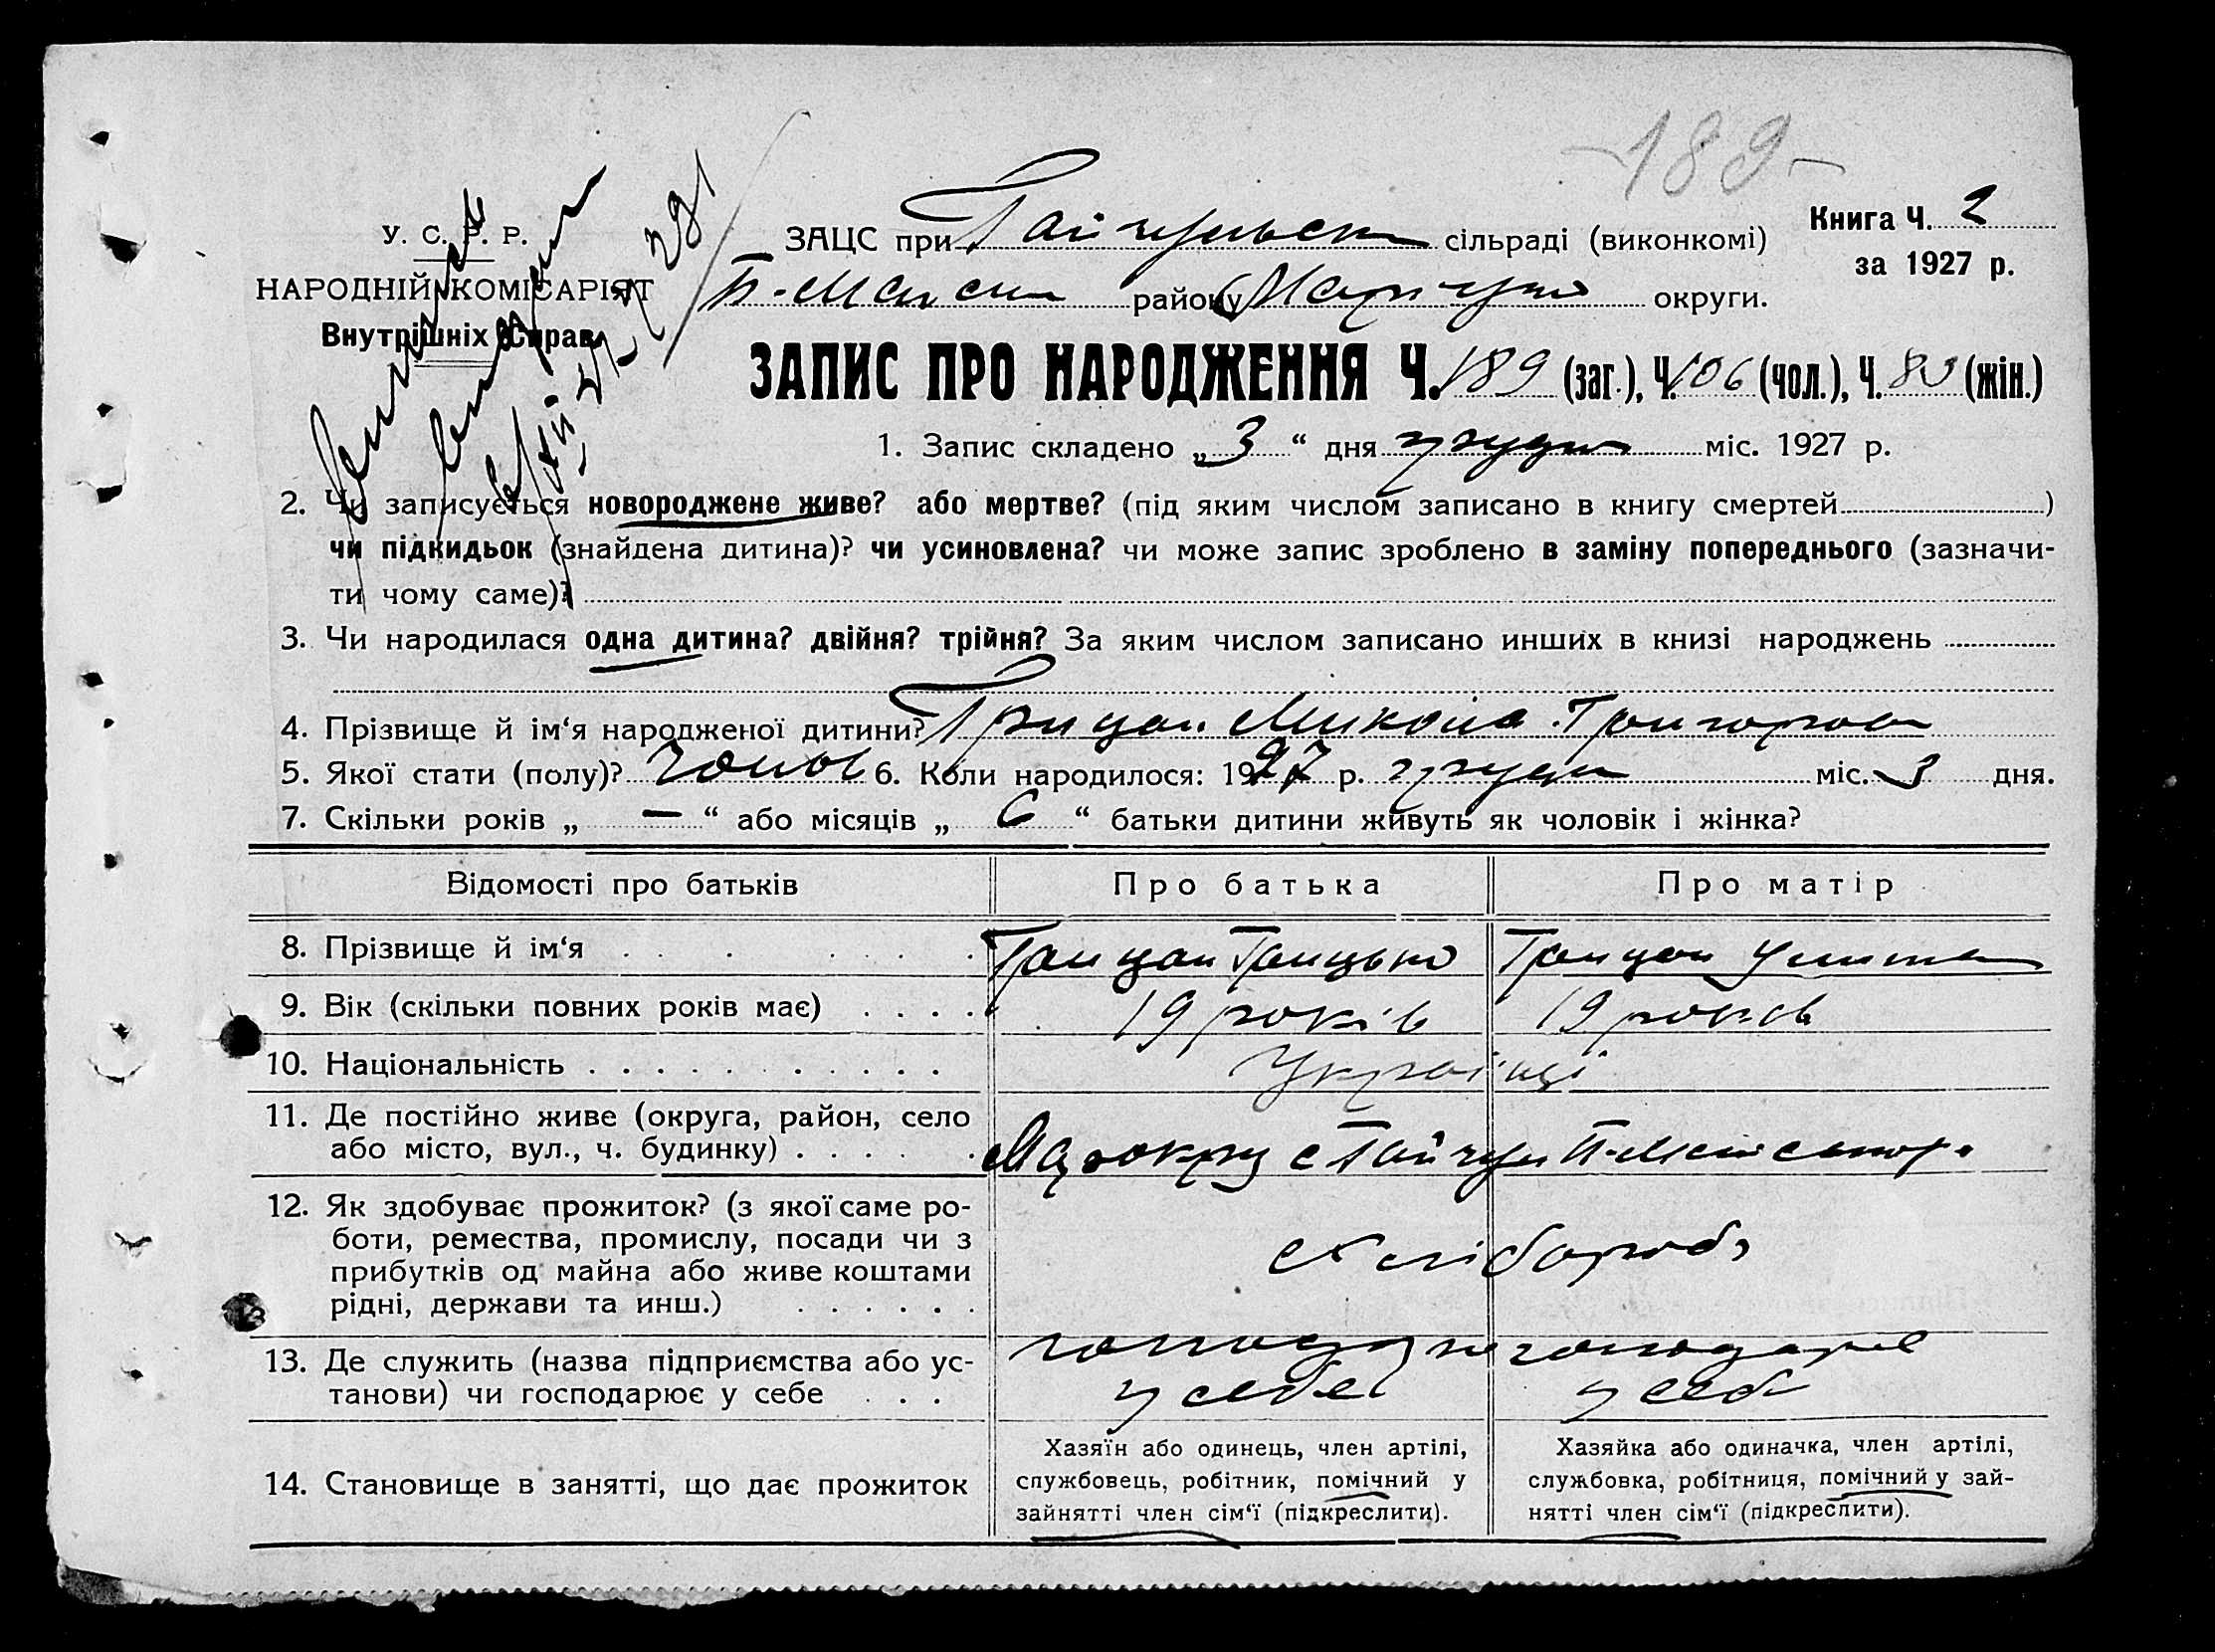 -189-
У. С. Р. Р.
НАРОДНІЙ КОМІСАРІЯТ
Внутрішніх Справ
ЗАЦС при Гайчульск сільраді (виконкомі)
району Маріуп округи.
Книга Ч. 2
за 1927 р.
ЗАПИС ПРО НАРОДЖЕННЯ Ч. 189 (заг.), Ч. 106 (чол.), Ч. 83 (жін.)
1. Запис складено „3“ дня грудн міс. 1927 р.
2. Чи записується новороджене живе? або мертве? (під яким числом записано в книгу смертей)
чи підкидьок (знайдена дитина)? чи усиновлена? чи може запис зроблено в заміну попереднього (зазначи-
ти чому саме)?
3. Чи народилася одна дитина? двійня? трійня? За яким числом записано инших в книзі народжень
4. Прізвище й ім‘я народженої дитини? Грицай Микола Григоров
5. Якої стати (полу)? чолов 6. Коли народилося: 1927 р. грудн міс. 3 дня.
7. Скільки років „ — “ або місяців „ 6 “ батьки дитини живуть як чоловік і жінка?
Відомості про батьків Про батька Про матір
8. Прізвище й ім‘я Грицай Грицько Грицай
9. Вік (скільки повних років має) 19 років 19 років
10. Національність Українці
11. Де постійно живе (округа, район, село
або місто, вул., ч. будинку) округ с Гайчул
12. Як здобуває прожиток? (з якої саме ро-
боти, ремества, промислу, посади чи з
прибутків од майна або живе коштами
рідні, держави та инш.) Хлібороб
13. Де служить (назва підприємства або ус-
танови) чи господарює у себе у себе у себе
14. Становище в занятті, що дає прожиток
Хазяїн або одинець, член артілі,
службовець, робітник, помічний у
зайнятті член сім‘ї (підкреслити).
Хазяйка або одиначка, член артілі,
службовка, робітниця, помічний у зай-
нятті член сім‘ї (підкреслити).